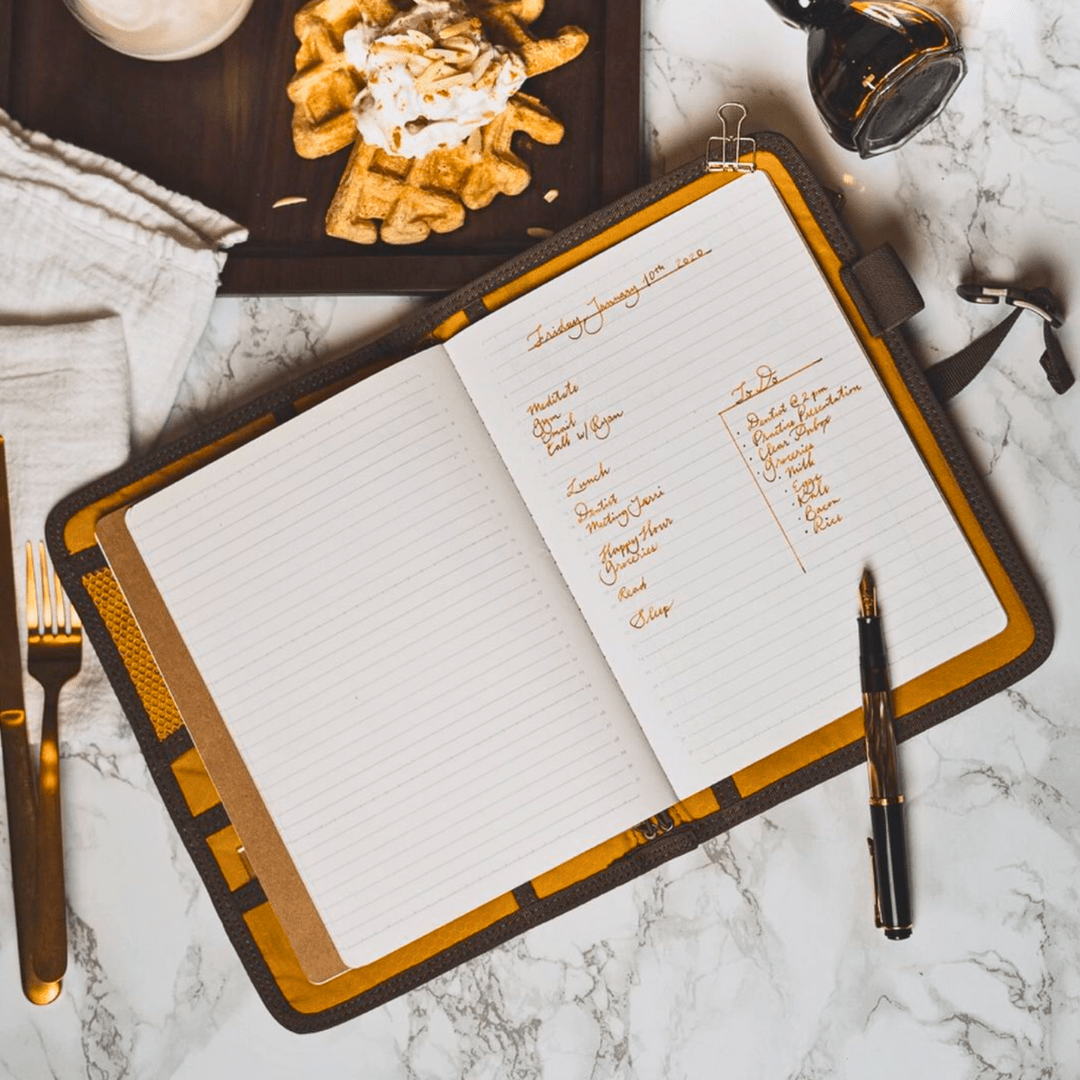 Friday, January 10th 2020
Meditate
Gym
Email
Call w/ Ryan
Lunch
Dentist
Meeting Jerri
Happy Hour
Groceries
Read
Sleep
To Do
· Dentist @ 2 pm
· Practice Presentation
· Clear Inbox
· Groceries
· Milk
· Eggs
· Kale
· Bacon
· Rice